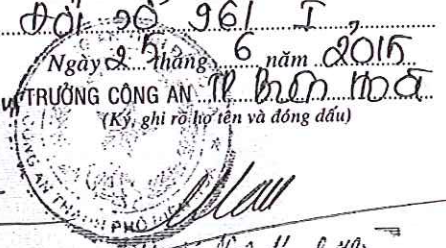 Đổi sổ 961 I
Ngày 25 tháng 6 năm 2015
TRƯỞNG CÔNG AN TP Biên Hoà
(Ký, ghi rõ họ tên và đóng dấu)
CÔNG AN THÀNH PHỐ